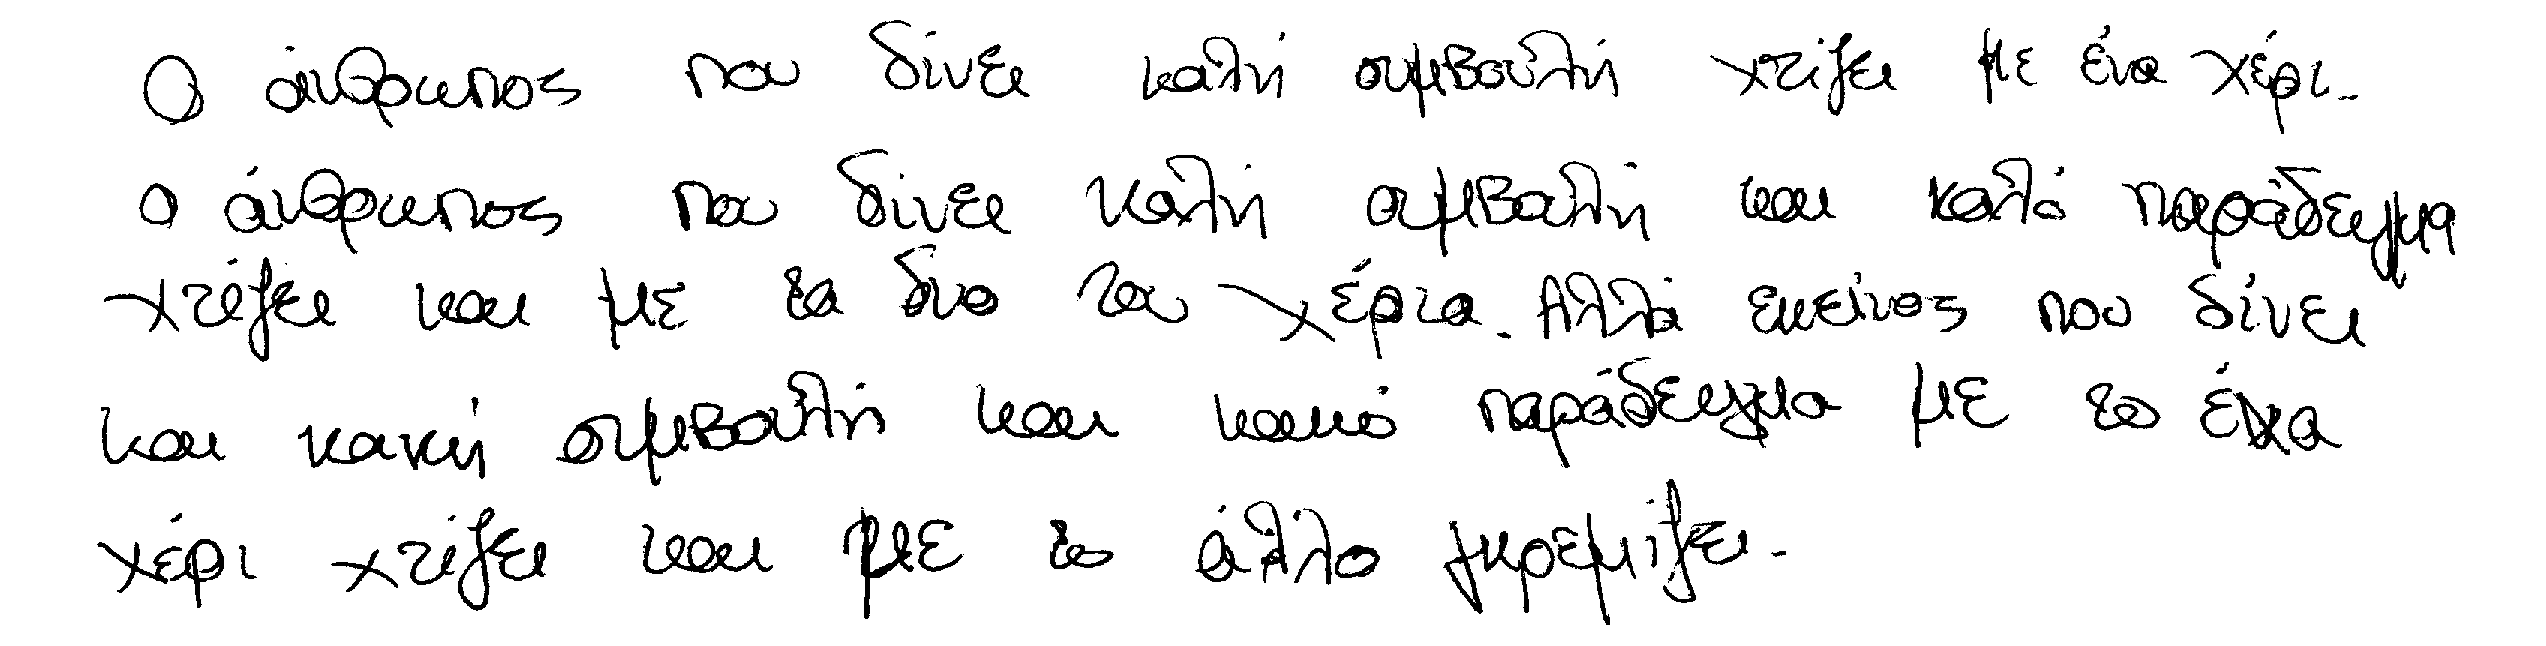 Ο άνθρωπος που δίνει καλή συμβουλή χτίζει με ένα χέρι.
Ο άνθρωπος που δίνει καλή συμβουλή και καλό παράδειγμα
χτίζει και με τα δυο του χέρια. Αλλά εκείνος που δίνει
και κακή συμβουλή και κακό παράδειγμα με το ένα
χέρι χτίζει και με το άλλο γκρεμίζει.